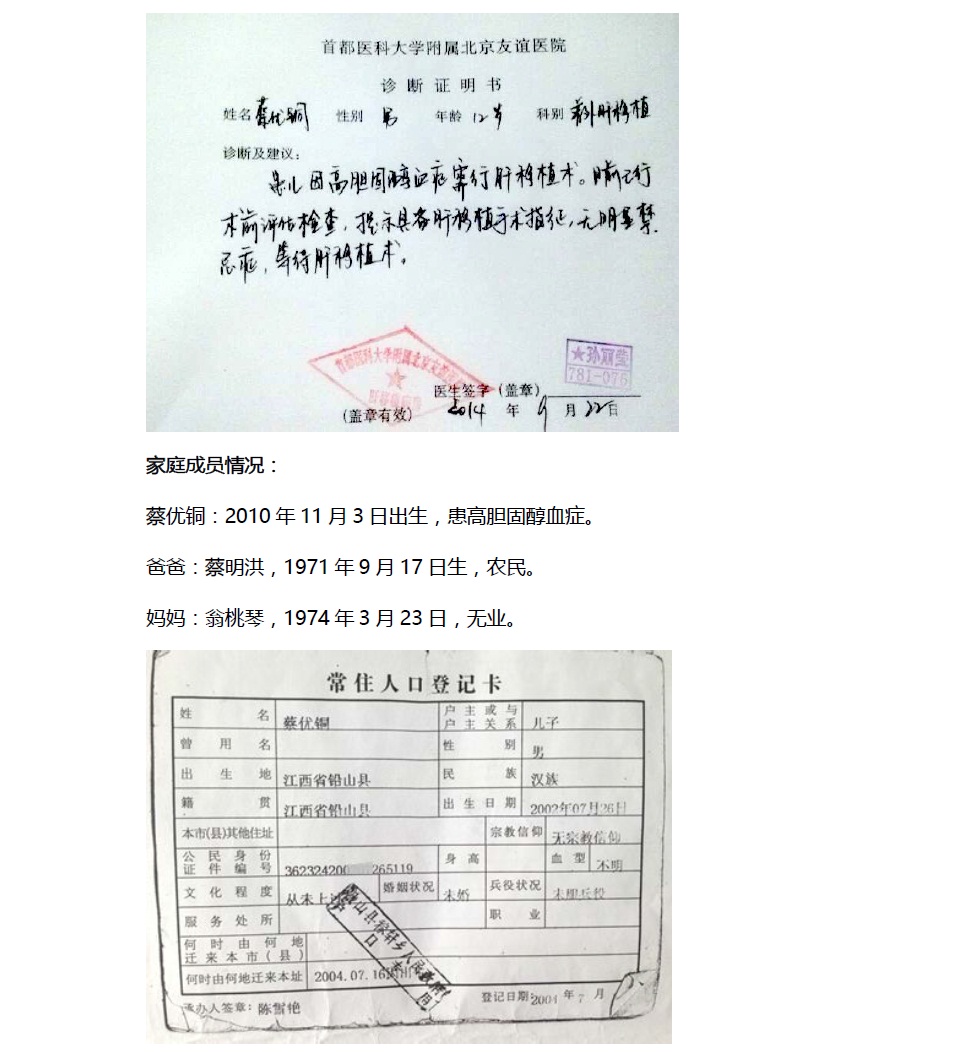 首都医科大学附属北京友谊医院
诊断证明书
姓名 蔡优铜 性别 男 年龄 12岁 科别 肝移植
诊断及建议:
患儿因高胆固醇血症需行肝移植术。目前已行
术前评估检查,提示具备肝移植手术指征,无明显禁
忌症,等待肝移植术。
首都医科大学附属北京友谊医院
781-076
医生签字(盖章)
(盖章有效) 2014 年 9 月 22 日
家庭成员情况:
蔡优铜:2010 年 11 月 3 日出生,患高胆固醇血症。
爸爸:蔡明洪,1971 年 9 月 17 日生,农民。
妈妈:翁桃琴,1974 年 3 月 23 日,无业。
常住人口登记卡
姓名 蔡优铜 户主或与户主关系 儿子
曾用名 性别 男
出生地 江西省铅山县 民族 汉族
籍贯 江西省铅山县 出生日期 2002年07月26日
本市(县)其他住址 宗教信仰 无宗教信仰
公民身份证件编号 362324200 265119 身高 血型 不明
文化程度 从未上过 婚姻状况 未婚 兵役状况 未服兵役
服务处所 职业
何时由何地迁来本市(县)
何时由何地迁来本址 2004.07.16
承办人签章:陈雪艳 登记日期:2004 年 7 月